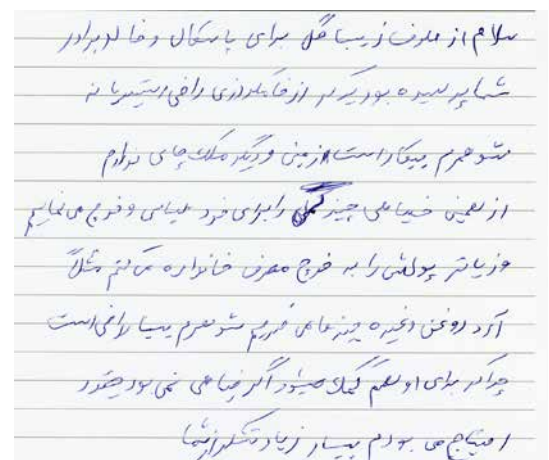 سلام از طرف زیبا گل برای پاسکال و خاله برادر
شما پرسیده بودید که از خامکدوزی راضی استید یا نه
شوهرم بیکار است زمینی و دیگر ملک های ندارم
از همین خیاطی چیز را برای خود لباس و خرج می نمایم
و زیاتر پولش را به خرج مصرف خانواده می کنم مثلاً
آرد روغن وغیره چیزهای خریم شوهرم بسیار راضی است
چرا که برای او هم کمک میشود اگر خیاطی نمی بود چقدر
احتیاج می بودم بسیار زیاد تشکر از شما